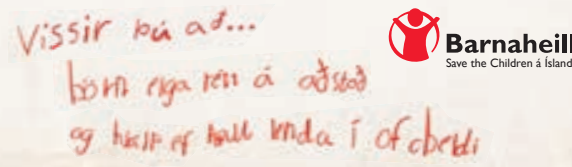 Vissir þú að...
börn eiga rétt á aðstoð
og hjálp ef þall lenda í ofbeldi
Barnaheill
Save the Children á Íslandi